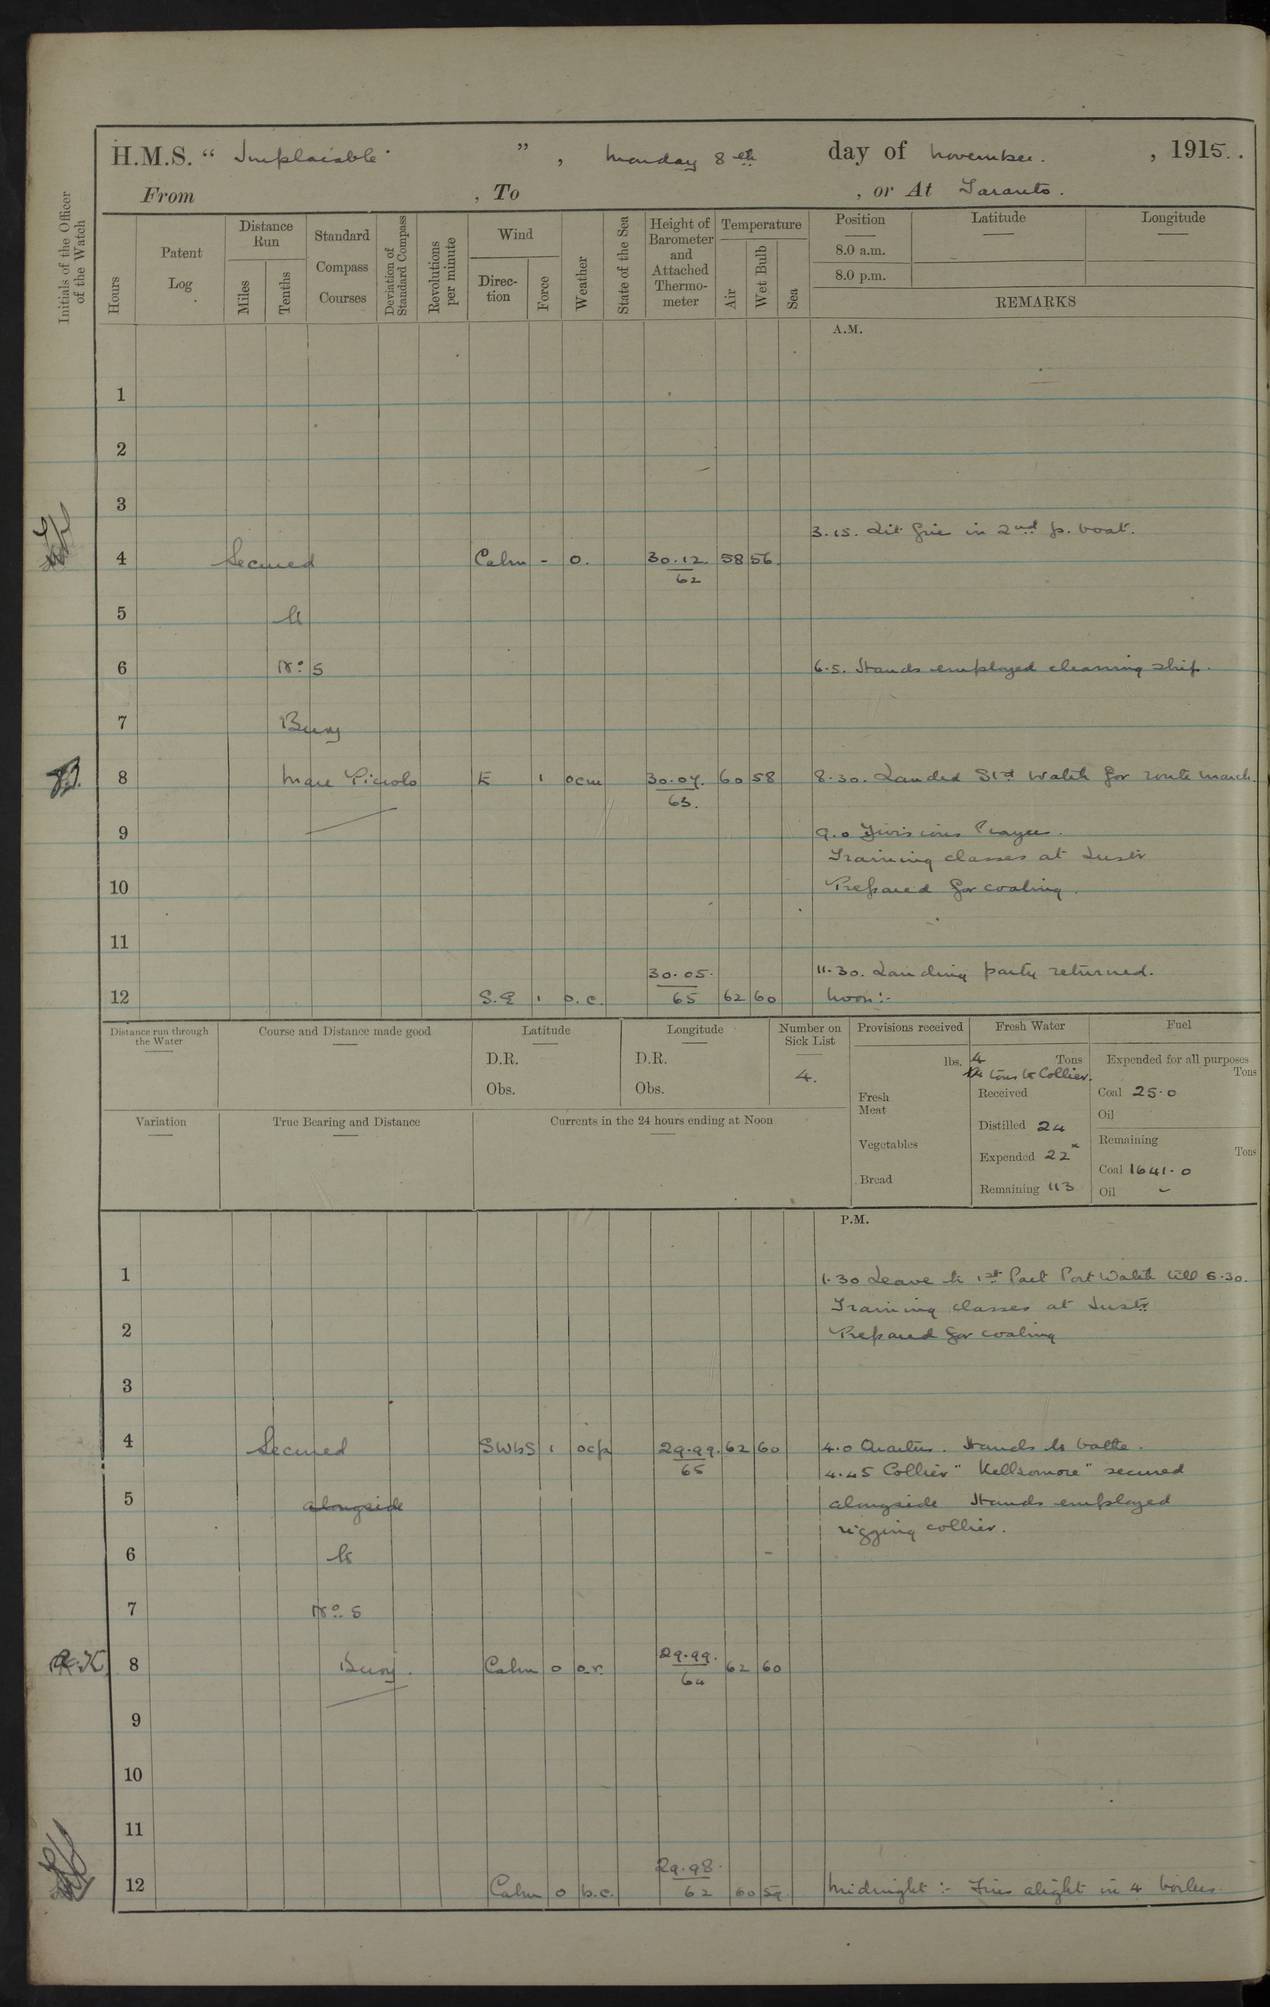 H.M.S. "Implacable", Monday 8th day of November, 1915.
From , To , or At Taranto.
Initials of the Officer of the Watch
Hours
Patent Log
Distance Run
Miles
Tenths
Standard Compass Courses
Deviation of Standard Compass
Revolutions per minute
Wind
Direction
Force
Weather
State of the Sea
Height of Barometer and Attached Thermometer
Temperature
Air
Wet Bulb
Sea
Position
Latitude
Longitude
8.0 a.m.
8.0 p.m.
REMARKS
A.M.
1
2
3
3.15. Lit fire in 2nd p. boat.
4 Secured Calm - o. 30.12. 58 56
62
5 to
6 No 5 6.5. Hands employed cleaning ship.
7 Buoy
8 Mare Piccolo E 1 ocm 30.07. 60 58 8.30. Landed Std Watch for route march.
63.
9 9.0 Divisions Prayers.
Training classes at Instr
10 Prepared for coaling.
11
30.05. 11.30. Landing party returned.
12 S.E 1 o.c. 65 62 60 Noon:-
Distance run through the Water
Course and Distance made good
Latitude
D.R.
Obs.
Longitude
D.R.
Obs.
Number on Sick List
4.
Provisions received
lbs.
Fresh Meat
Vegetables
Bread
Fresh Water
4 Tons
tons to Collier.
Received
Distilled 24
Expended 22x
Remaining 113
Fuel
Expended for all purposes
Tons
Coal 25.0
Oil
Remaining
Tons
Coal 1641.0
Oil -
Variation
True Bearing and Distance
Currents in the 24 hours ending at Noon
P.M.
1 1.30 Leave to 1st Part Port Watch till 6.30.
Training classes at Instr
2 Prepared for coaling
3
4 Secured SWbS 1 ocp 29.99. 62 60 4.0 Quarters. Hands to bathe.
65 4.45 Collier "Kellsomore" secured
5 alongside alongside Hands employed
rigging collier.
6 to -
7 No. 5
8 Buoy. Calm 0 o.r. 29.99. 62 60
64
9
10
11
29.98.
12 Calm 0 b.c. 62 60 59 Midnight:- Fires alight in 4 boilers